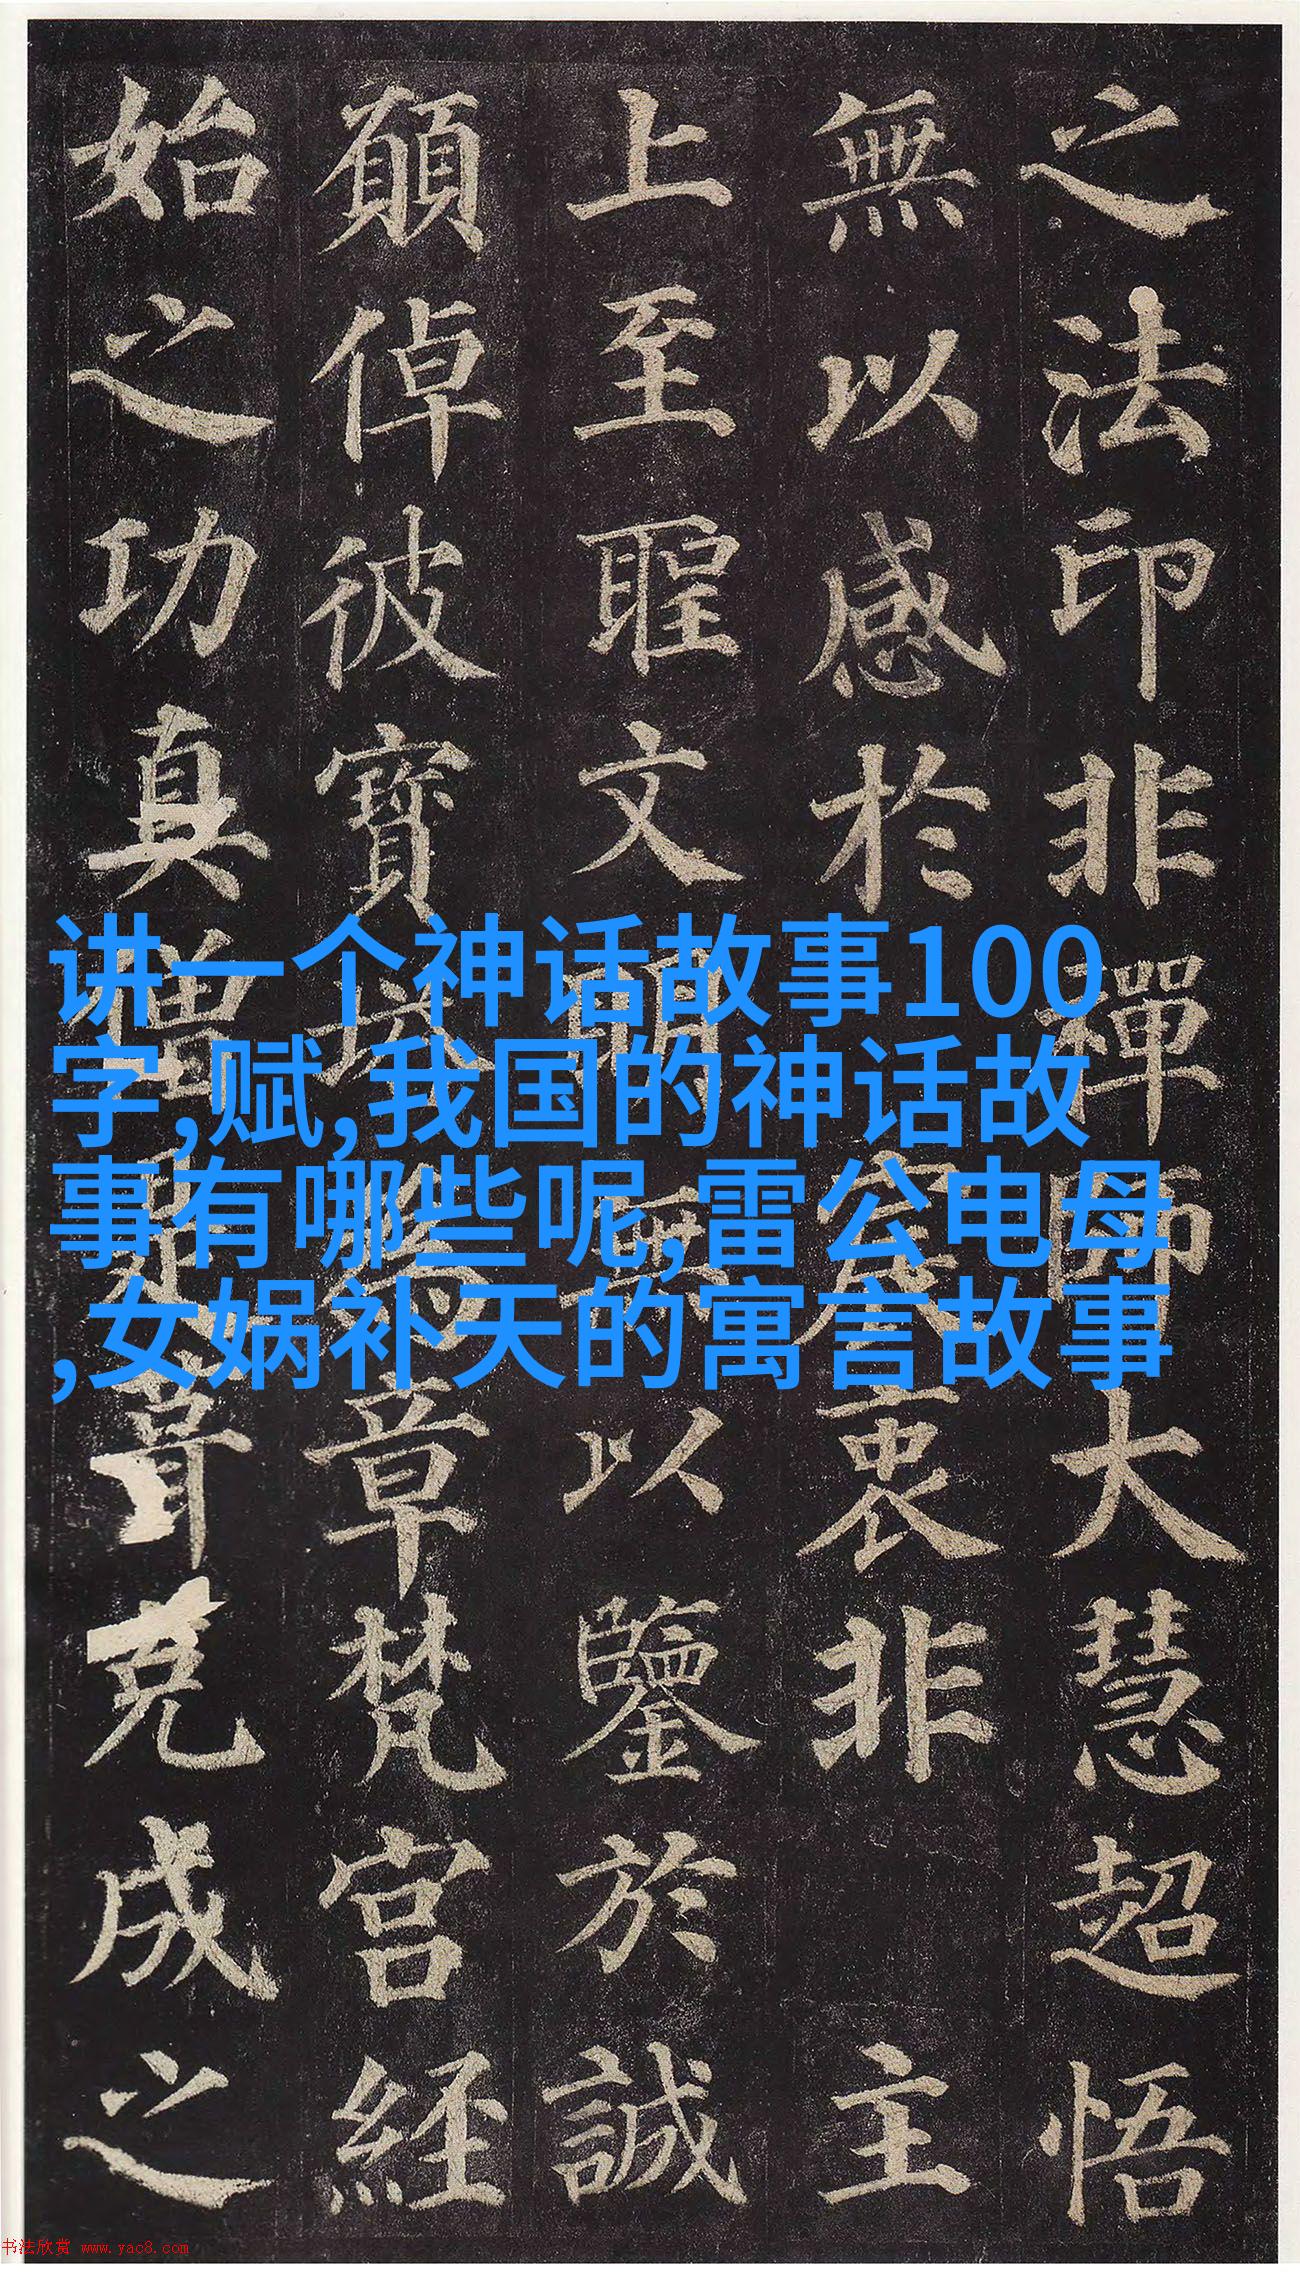 之法印非禪師大慧超悟
無以感於宸衷非主
上至聖文明無以鑒於誠
願倬彼寶塔為章梵宮経
始之功真僧是葺克成之
讲一个神话故事100
字,赋,我国的神话故
事有哪些呢,雷公电母
,女娲补天的寓言故事
书法欣赏 www.yac8.com